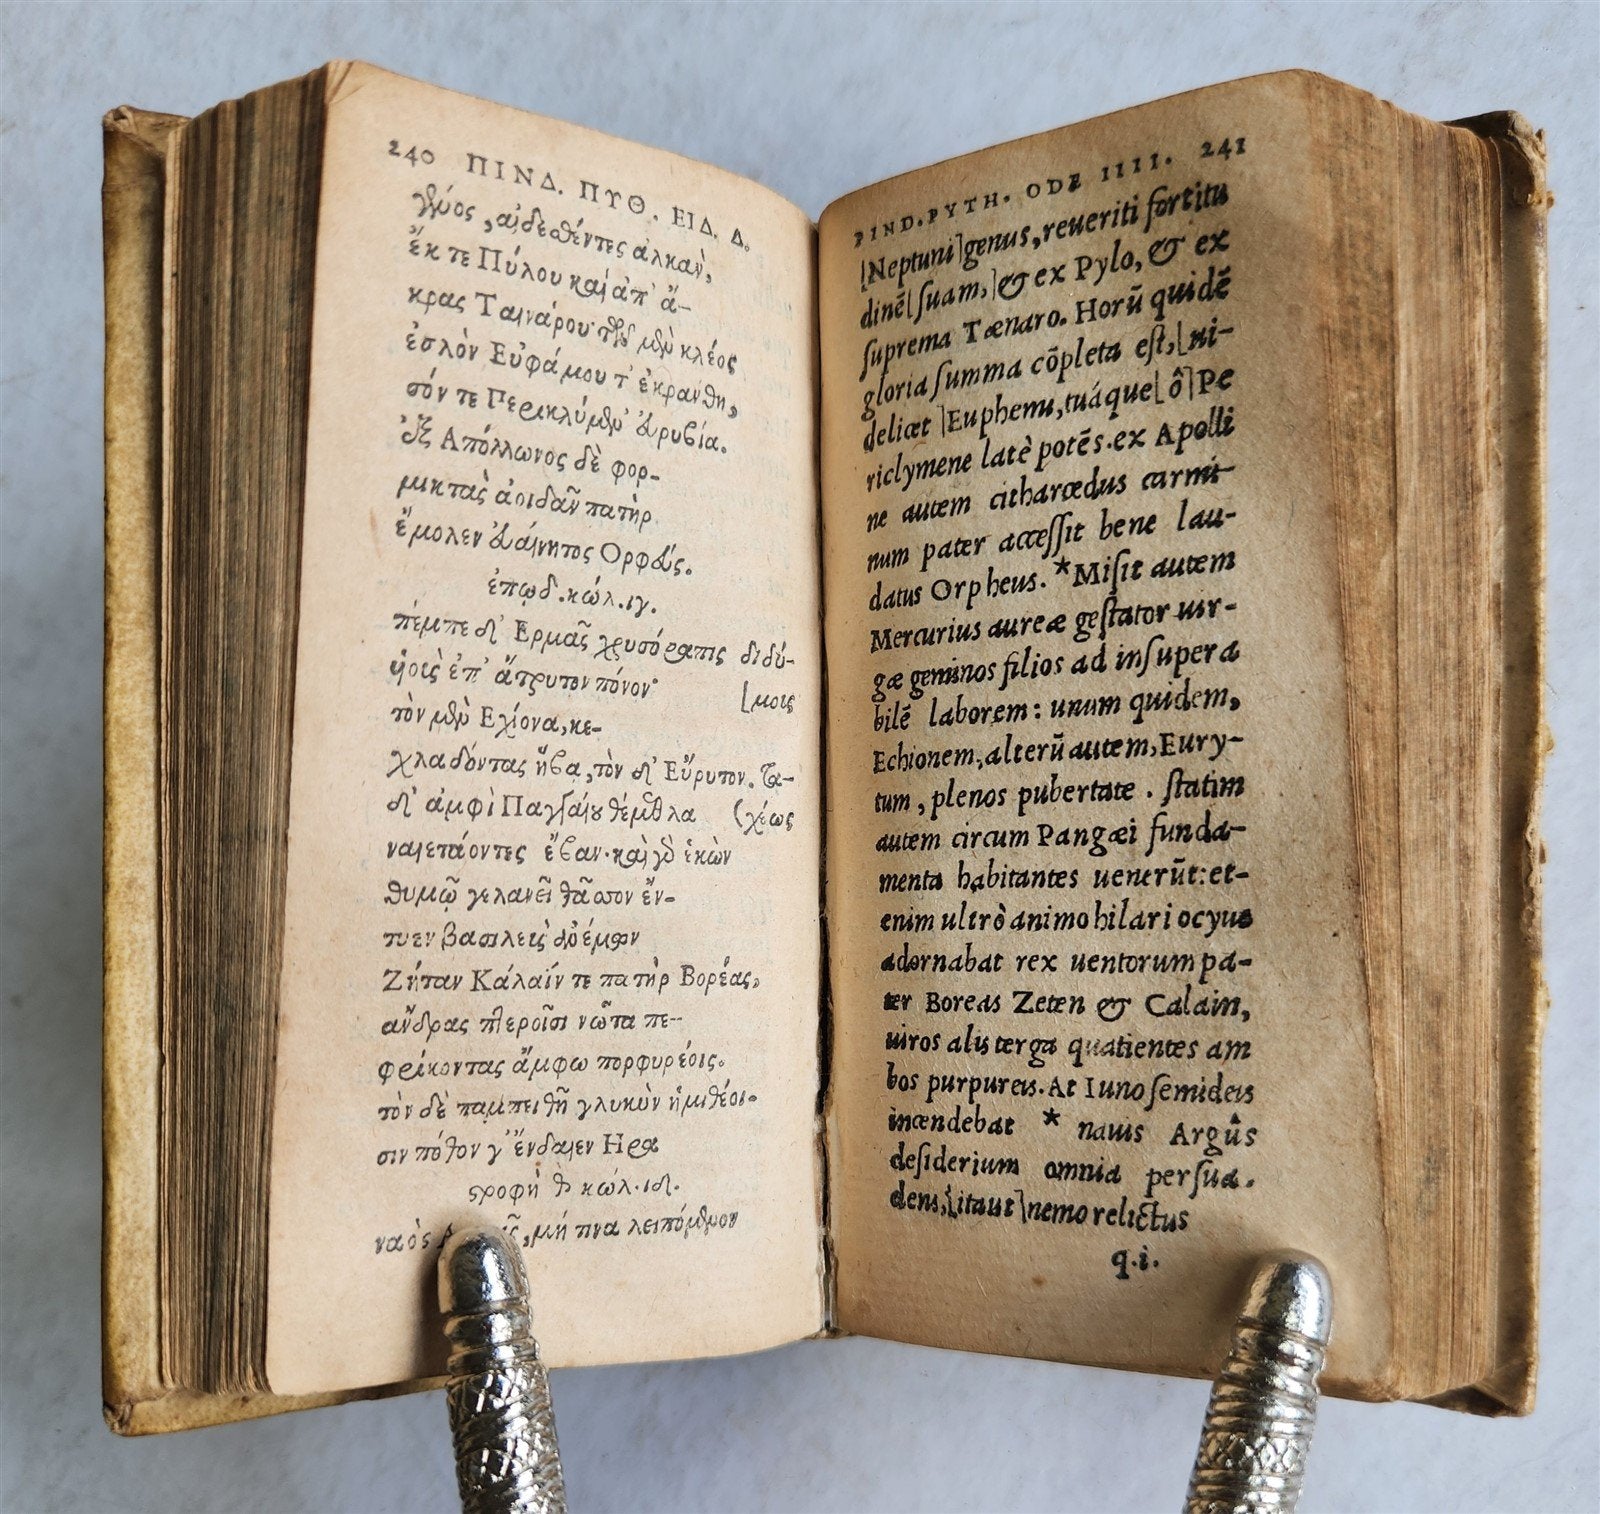 240 ΠΙΝΔ. ΠΥΘ. ΕΙΔ. Δ.
γένος, αἰδεσθέντες ἀλκὰν,
ἔκ τε Πύλου καὶ ἀπ' ἄ-
κρας Ταινάρου· τῶν μὲν κλέος
ἐσλὸν Εὐφάμου τ' ἐκράνθη,
σόν τε Περικλύμεν' εὐρυβία.
ἐξ Απόλλωνος δὲ φορ-
μικτὰς ἀοιδᾶν πατὴρ
ἔμολεν εὐαίνητος Ορφεύς.
ἐπῳδ. κώλ. ιγ.
πέμπε δ' Ερμᾶς χρυσόραπις διδύ-
[μοις
ἐπ' ἄτρυτον πόνον·
τὸν μὲν Εχίονα, κε-
χλαδόντας ἥβᾳ, τὸν δ' Εὔρυτον. τα-
(χέως
δ' ἀμφὶ Παγγαίου θέμεθλα
ναιετάοντες ἔβαν· καὶ γὰρ ἑκὼν
θυμῷ γελανεῖ θᾶσσον ἔν-
τυεν βασιλεὺς ἀνέμων
Ζήταν Κάλαΐν τε πατὴρ Βορέας,
ἄνδρας πτεροῖσι νῶτα πε-
φρίκοντας ἄμφω πορφυρέοις.
τὸν δὲ παμπειθῆ γλυκὺν ἡμιθέοι-
σιν πόθον γ' ἔνδαιεν Ηρα
στροφὴ θ κώλ. ιδ.
ναὸς μή τινα λειπόμενον
PIND. PYTH. ODE IIII. 241
[Neptuni] genus, reueriti fortitu
dinē[suam,] & ex Pylo, & ex
suprema Tænaro. Horū quidē
gloria summa cōpleta est, [ni-
delicet ]Euphemi, tuáque[ô]Pe
riclymene latè potēs. ex Apolli
ne autem citharœdus carmi-
num pater accessit bene lau-
datus Orpheus. *Misit autem
Mercurius aureæ gestator uir-
gæ geminos filios ad insupera
bilē laborem: unum quidem,
Echionem, alterū autem, Eury-
tum, plenos pubertate. statim
autem circum Pangæi funda-
menta habitantes uenerūt: et-
enim ultrò animo hilari ocyus
adornabat rex uentorum pa-
ter Boreas Zeten & Calain,
uiros alis terga quatientes am
bos purpureis. At Iuno semideis
incendebat * nauis Argûs
desiderium omnia persua-
dens, [ita ut] nemo relictus
q.i.